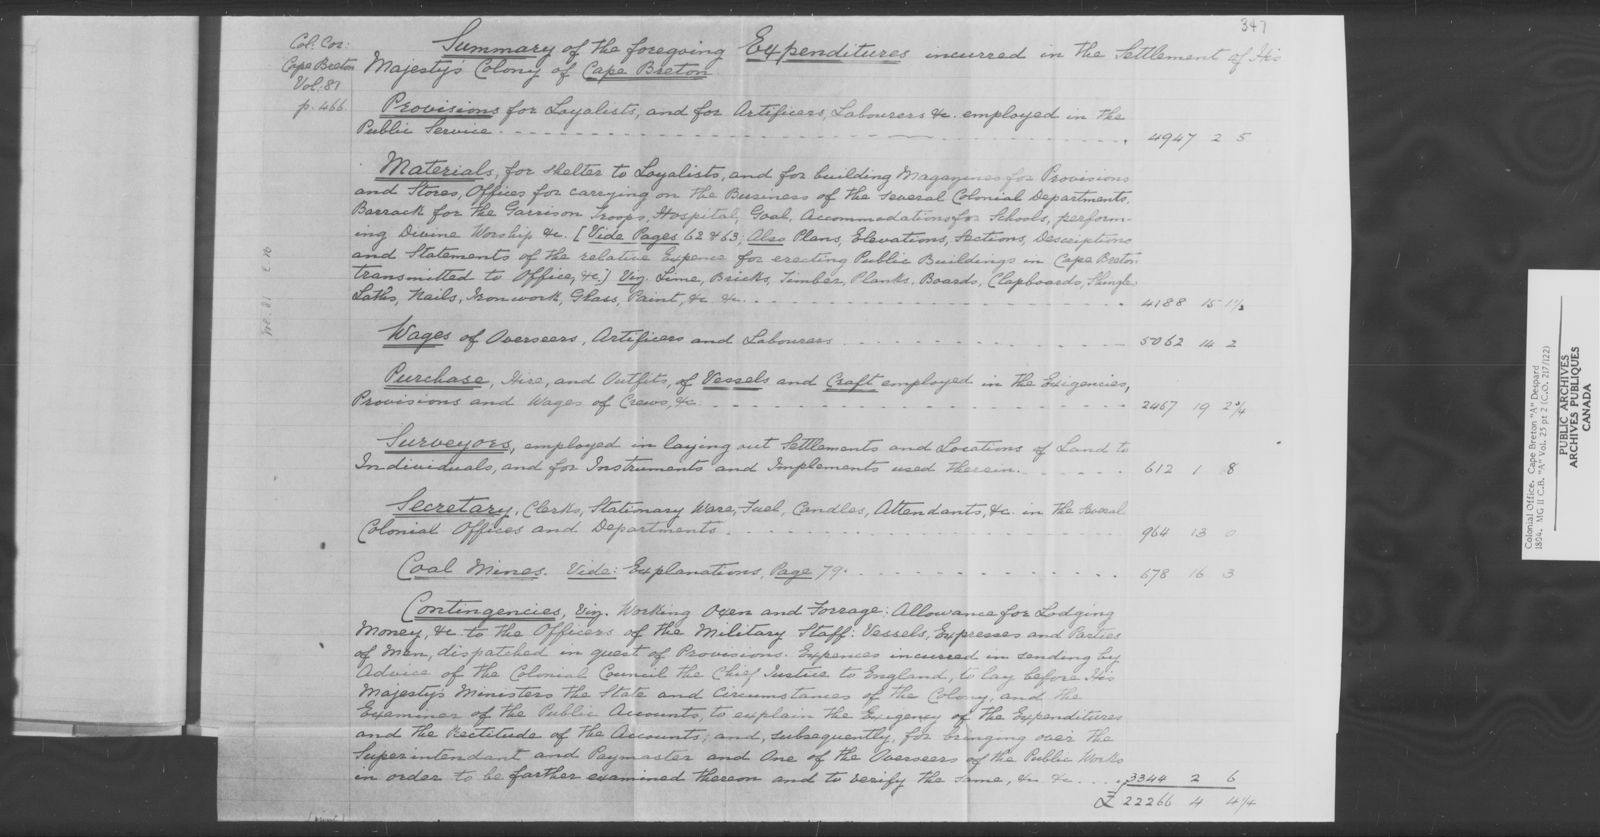 347
Col. Cor:
Cape Breton
Vol. 81
p. 466.
Summary of the foregoing Expenditures incurred in the Settlement of His
Majesty's Colony of Cape Breton.
Provisions for Loyalists, and for Artificers, Labourers &c. employed in the
Public Service. 4947 2 5
Materials, for shelter to Loyalists, and for building Magazines for Provisions
and Stores, Offices for carrying on the Business of the several Colonial Departments,
Barrack for the Garrison Troops, Hospital, Goal, Accommodations for Schools, perform-
ing Divine Worship &c. [Vide Pages 62 & 63, Also Plans, Elevations, Sections, Descriptions
and Statements of the relative Expence for erecting Public Buildings in Cape Breton
transmitted to Office, &c.] Viz. Lime, Bricks, Timber, Planks, Boards, Clapboards, Shingles
Laths, Nails, Iron work, Glass, Paint, &c &c. 4188 15 1½
Wages of Overseers, Artificers and Labourers 5062 14 2
Purchase, Hire, and Outfits, of Vessels and Craft employed in the Exigencies,
Provisions and Wages of Crews, &c. 2467 19 2¾
Surveyors, employed in laying out Settlements and Locations of Land to
Individuals, and for Instruments and Implements used therein. 612 1 8
Secretary, Clerks, Stationary Ware, Fuel, Candles, Attendants, &c. in the several
Colonial Offices and Departments 964 13 0
Coal Mines. Vide: Explanations, Page 79. 678 16 3
Contingencies, Viz. Working Oxen and Forrage: Allowance for Lodging
Money, &c. to the Officers of the Military Staff: Vessels, Expresses and Parties
of Men, dispatched in quest of Provisions. Expences incurred in sending by
Advice of the Colonial Council the Chief Justice to England, to lay before His
Majesty's Ministers the State and Circumstances of the Colony, and the
Examiner of the Public Accounts, to explain the Exigency of the Expenditures
and the Rectitude of the Accounts; and, subsequently, for bringing over the
Superintendant and Paymaster and One of the Overseers of the Public Works
in order to be farther examined thereon and to verify the same, &c &c. 3344 2 6
£ 22266 4 4¼
Colonial Office. Cape Breton "A" Despard
1804. MG 11 C.B. "A" Vol. 25 pt 2 (C.O. 217/122)
PUBLIC ARCHIVES
ARCHIVES PUBLIQUES
CANADA